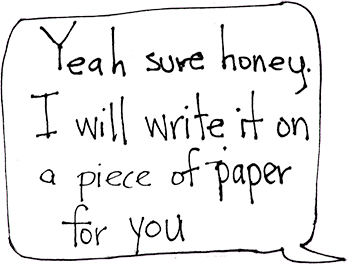 Yeah sure honey.
I will write it on
a piece of paper
for you